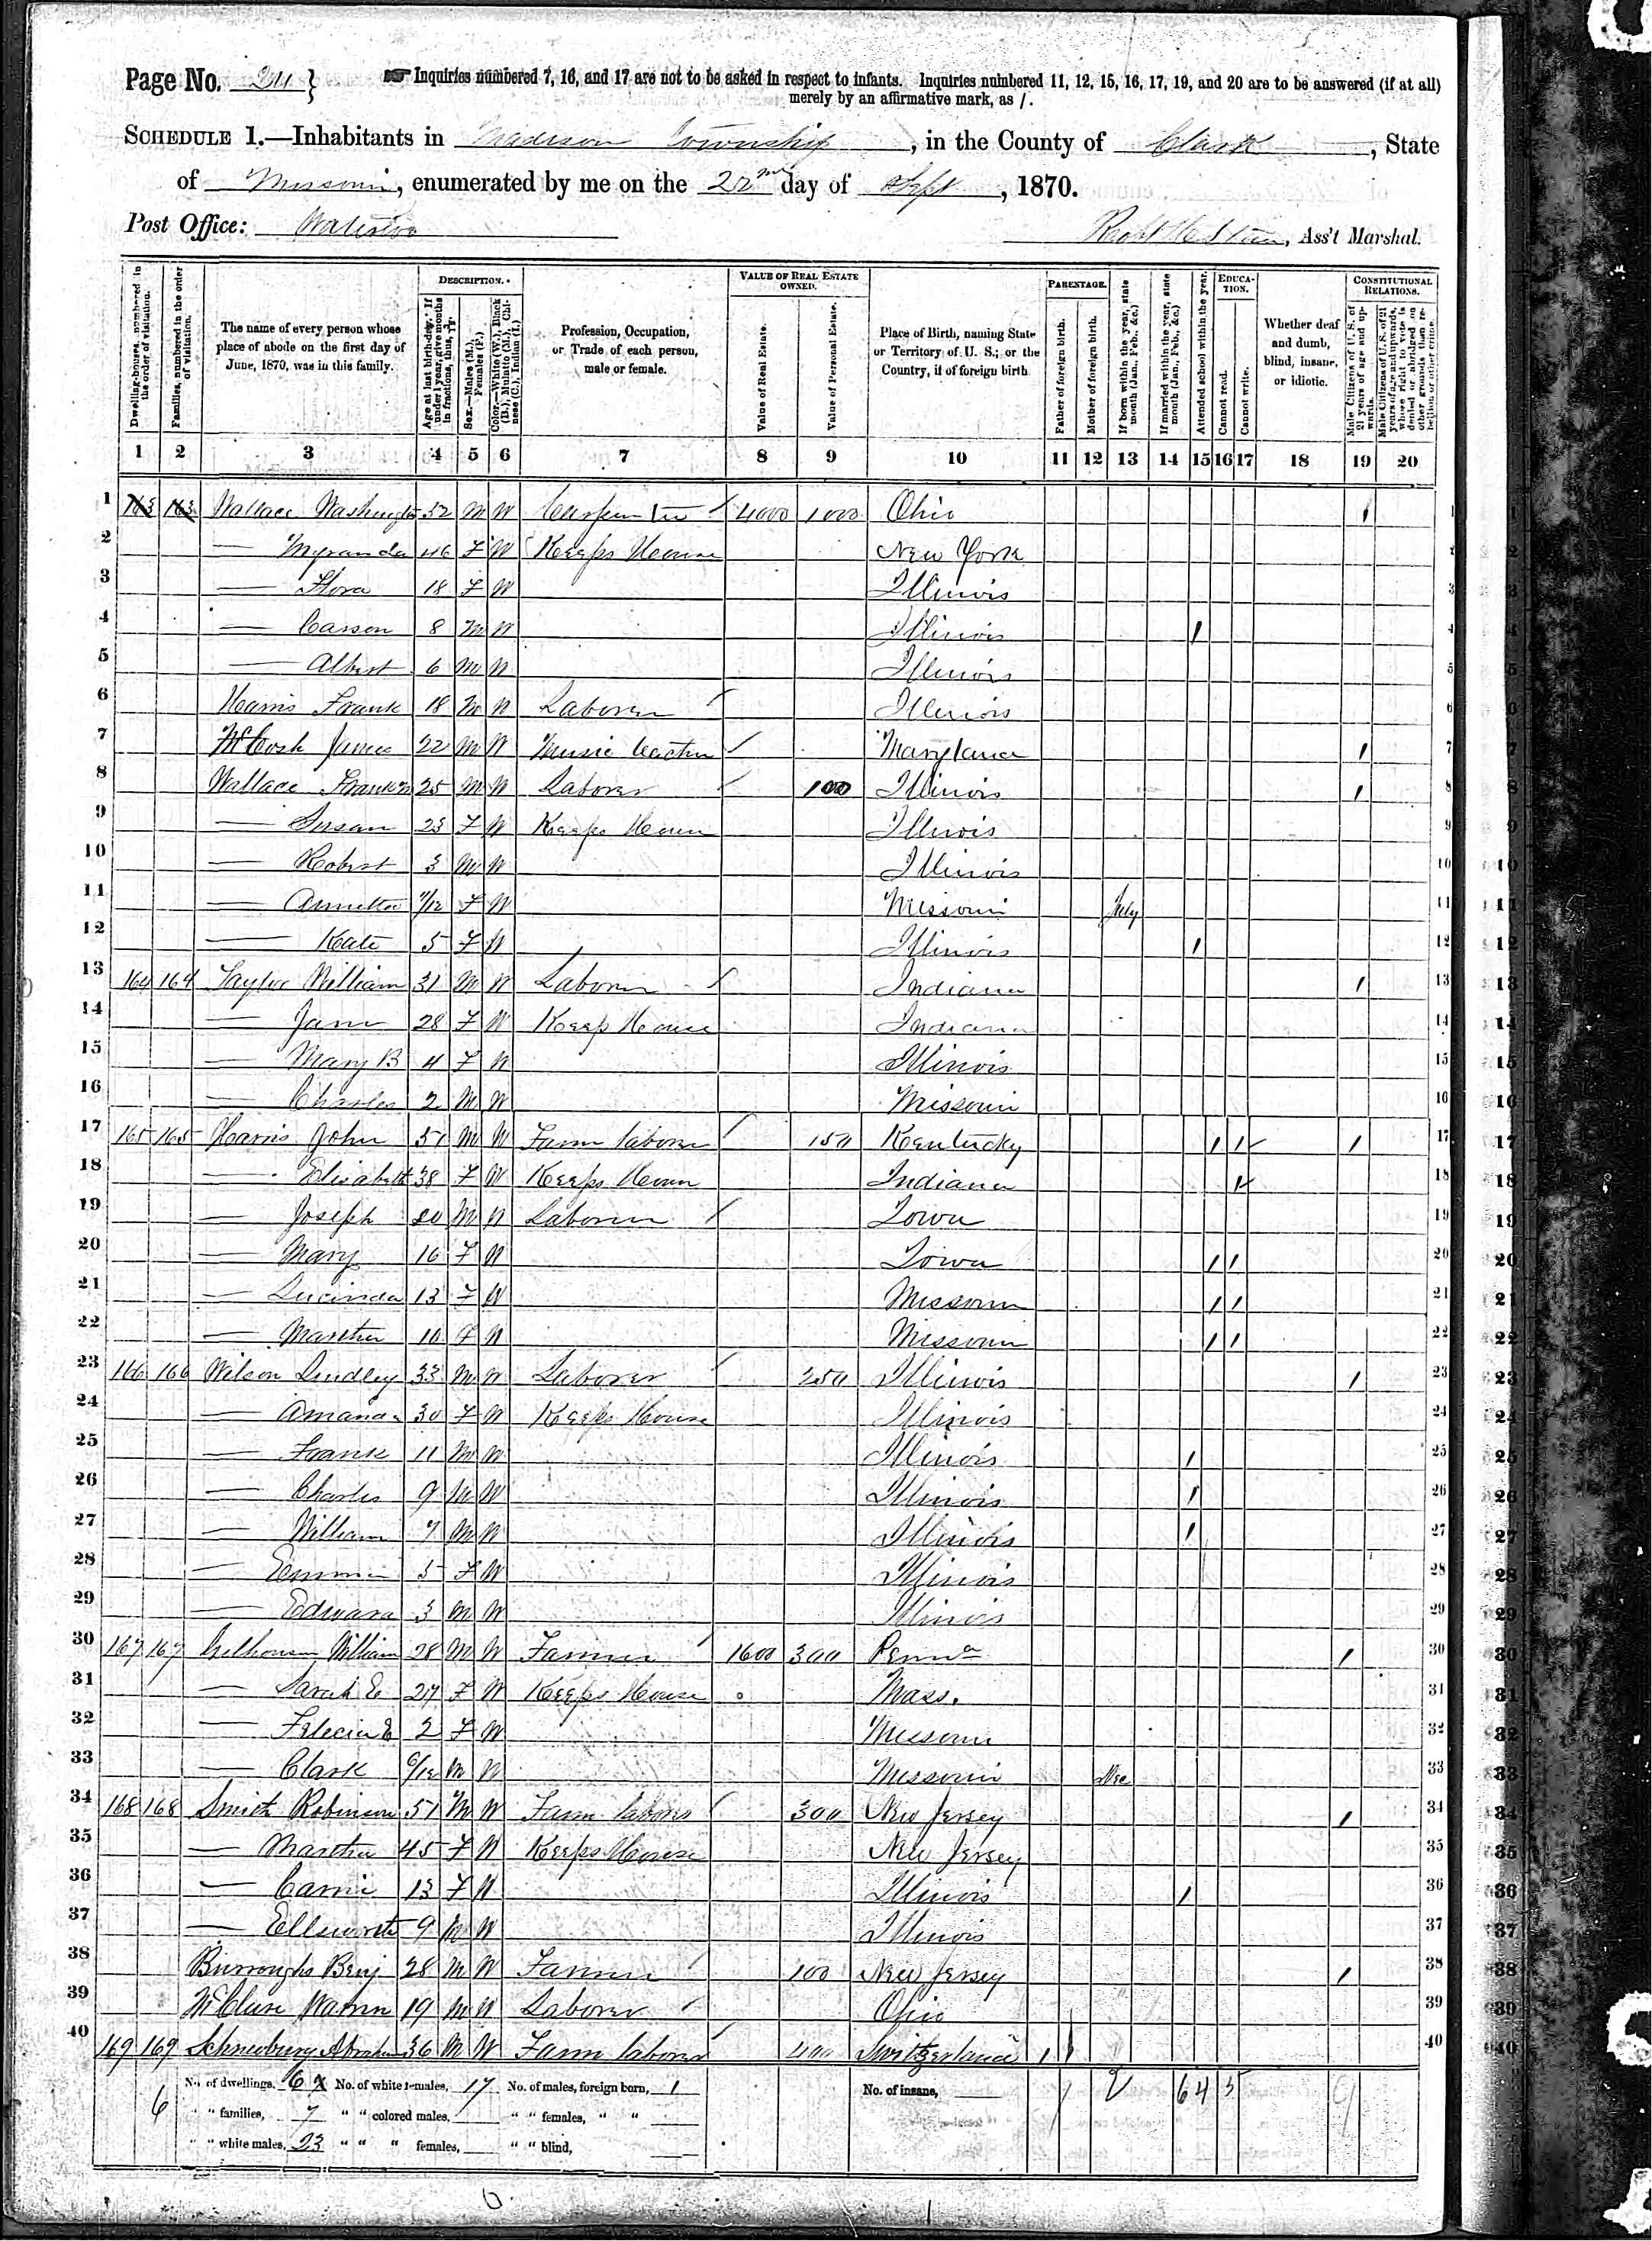 Page No. }
☞ Inquiries numbered 7, 16, and 17 are not to be asked in respect to infants. Inquiries numbered 11, 12, 15, 16, 17, 19, and 20 are to be answered (if at all)
merely by an affirmative mark, as /.
SCHEDULE 1.—Inhabitants in Madison Township, in the County of Clark, State
of Missouri, enumerated by me on the 22nd day of Sept, 1870.
Post Office: Waterloo
Ass't Marshal.
Dwelling-houses, numbered in the order of visitation.
Families, numbered in the order of visitation.
The name of every person whose place of abode on the first day of June, 1870, was in this family.
DESCRIPTION.
Age at last birth-day. If under 1 year, give months in fractions, thus, 3/12.
Sex.—Males (M.), Females (F.)
Color.—White (W.), Black (B.), Mulatto (M.), Chinese (C.), Indian (I.)
Profession, Occupation, or Trade of each person, male or female.
VALUE OF REAL ESTATE OWNED.
Value of Real Estate.
Value of Personal Estate.
Place of Birth, naming State or Territory of U. S.; or the Country, if of foreign birth.
PARENTAGE.
Father of foreign birth.
Mother of foreign birth.
If born within the year, state month (Jan., Feb., &c.)
If married within the year, state month (Jan., Feb., &c.)
Attended school within the year.
EDUCATION.
Cannot read.
Cannot write.
Whether deaf and dumb, blind, insane, or idiotic.
CONSTITUTIONAL RELATIONS.
Male Citizens of U. S. of 21 years of age and upwards.
Male Citizens of U. S. of 21 years of age and upwards, whose right to vote is denied or abridged on other grounds than rebellion or other crime.
1 2 3 4 5 6 7 8 9 10 11 12 13 14 15 16 17 18 19 20
1 163 163 Wallace Washington M W Carpenter 4000 1000 Ohio / 1
2 — Myranda 46 F W Keeps House New York 2
3 — Flora 18 F W Illinois 3
4 — Carson 8 M W Illinois / 4
5 — Albert 6 M W Illinois 5
6 Harris Frank 18 M W Laborer Illinois 6
7 McCosh James 22 M W Music teacher Maryland / 7
8 Wallace 25 M W Laborer 100 Illinois / 8
9 — Susan 23 F W Keeps House Illinois 9
10 — Robert 3 M W Illinois 10
11 — F W Missouri July 11
12 — Kate 5 F W Illinois / 12
13 164 164 Taylor William 31 M W Laborer Indiana / 13
14 — Jane 28 F W Keeps House Indiana 14
15 — Mary B 4 F W Illinois 15
16 — Charles 2 M W Missouri 16
17 165 165 Harris John 51 M W Farm laborer 150 Kentucky / / / 17
18 — Elisabeth 38 F W Keeps House Indiana / 18
19 — Joseph 20 M W Laborer Iowa 19
20 — Mary 16 F W Iowa / / 20
21 — Lucinda 13 F W Missouri / / 21
22 — Martha 10 F W Missouri / / 22
23 166 166 Wilson Lindley 33 M W Laborer 250 Illinois / 23
24 — Amanda 30 F W Keeps House Illinois 24
25 — Frank 11 M W Illinois / 25
26 — Charles 9 M W Illinois / 26
27 — William 7 M W Illinois / 27
28 — Emma 5 F W Illinois 28
29 — Edward 3 M W Illinois 29
30 167 167 William 28 M W Farmer 1600 300 Penna / 30
31 — Sarah E 27 F W Keeps House Mass. 31
32 — Felecia E 2 F W Missouri 32
33 — Clark 6/12 M W Missouri Dec 33
34 168 168 Smith Robinson 51 M W Farm laborer 300 New Jersey / 34
35 — Martha 45 F W Keeps House New Jersey 35
36 — Carrie 13 F W Illinois / 36
37 — Ellsworth 9 M W Illinois 37
38 Burroughs Benj 28 M W Farmer 100 New Jersey / 38
39 McClure Warren 19 M W Laborer Ohio 39
40 169 169 Abraham 36 M W Farm laborer 400 Switzerland / / 40
No. of dwellings, 6 No. of white females, 17 No. of males, foreign born, 1 No. of insane, 6 4 5
6 " " families, 7 " " colored males, " " females, " "
" " white males, 23 " " " females, " " blind,